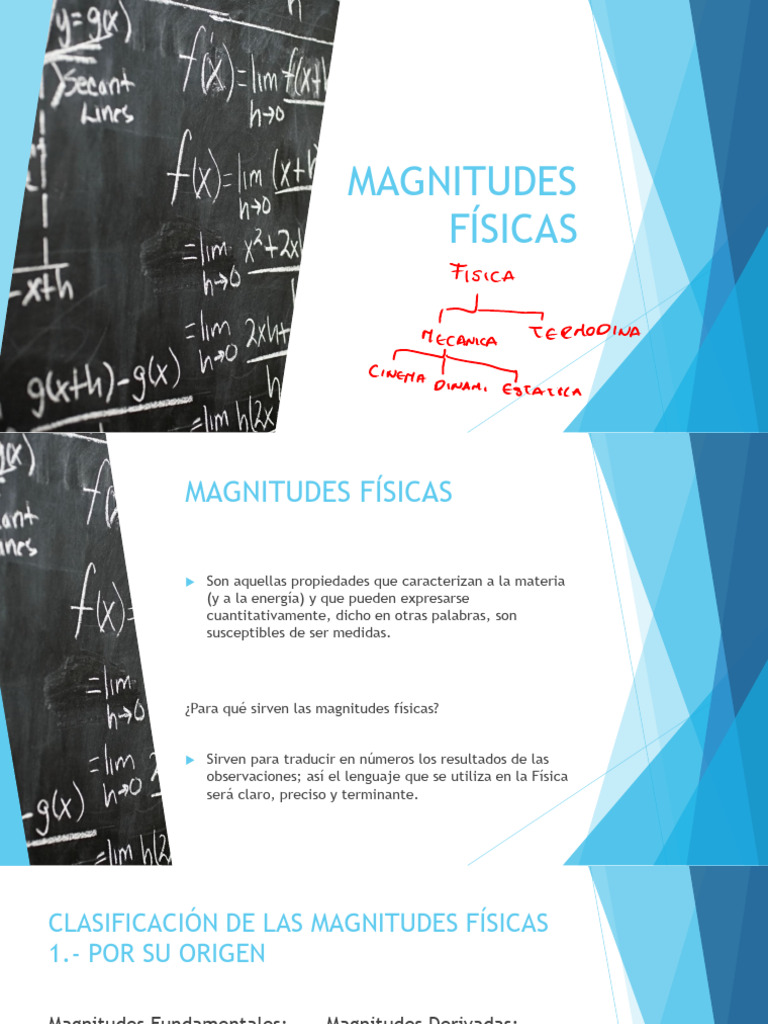 y=g(x)
Secant
Lines
-x+h
g(x+h)-g(x)
f(x)=lim f(x+h
h→0
f(x)=lim (x+h
h→0
=lim x²+2xh
h→0
=lim 2xh+
h→0
h
=lim h(2x
MAGNITUDES
FÍSICAS
FISICA
MECANICA TERMODINA
CINEMA DINAMI. ESTATICA
MAGNITUDES FÍSICAS
Son aquellas propiedades que caracterizan a la materia
(y a la energía) y que pueden expresarse
cuantitativamente, dicho en otras palabras, son
susceptibles de ser medidas.
¿Para qué sirven las magnitudes físicas?
Sirven para traducir en números los resultados de las
observaciones; así el lenguaje que se utiliza en la Física
será claro, preciso y terminante.
(x)
ant
ines
f(
f(x)=
=lim
h→0
=lim 2
h→0
-g(x)
=lim h(2
CLASIFICACIÓN DE LAS MAGNITUDES FÍSICAS
1.- POR SU ORIGEN
Magnitudes Fundamentales: Magnitudes Derivadas: